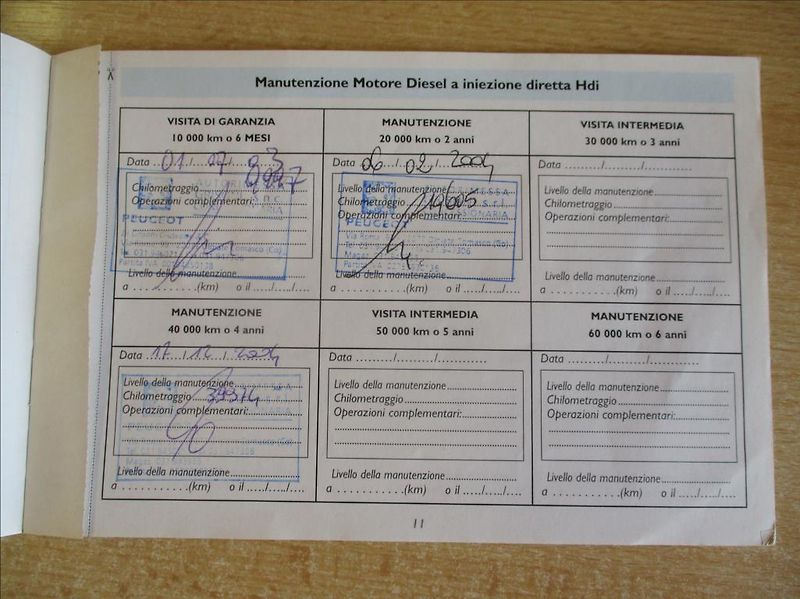 Manutenzione Motore Diesel a iniezione diretta Hdi
VISITA DI GARANZIA
10 000 km o 6 MESI
Data 01 / 07 / 03
Chilometraggio
Operazioni complementari:
PEUGEOT
Livello della manutenzione
a ...........(km) o il ...../...../....
MANUTENZIONE
20 000 km o 2 anni
Data 06 02 2004
Livello della manutenzione
Chilometraggio 19605
Operazioni complementari:
PEUGEOT
Via Roma
Livello della manutenzione
a ...........(km) o il ...../...../....
VISITA INTERMEDIA
30 000 km o 3 anni
Data ............./........../.............
Livello della manutenzione
Chilometraggio
Operazioni complementari:
Livello della manutenzione
a ...........(km) o il ...../...../....
MANUTENZIONE
40 000 km o 4 anni
Data 17 / 12 / 2004
Livello della manutenzione
Chilometraggio 39374
Operazioni complementari:
Livello della manutenzione
a ...........(km) o il ...../...../....
VISITA INTERMEDIA
50 000 km o 5 anni
Data ........../........../.............
Livello della manutenzione
Chilometraggio
Operazioni complementari:
Livello della manutenzione
a ...........(km) o il ...../...../....
MANUTENZIONE
60 000 km o 6 anni
Data ............./........../.............
Livello della manutenzione
Chilometraggio
Operazioni complementari:
Livello della manutenzione
a ...........(km) o il ...../...../....
11